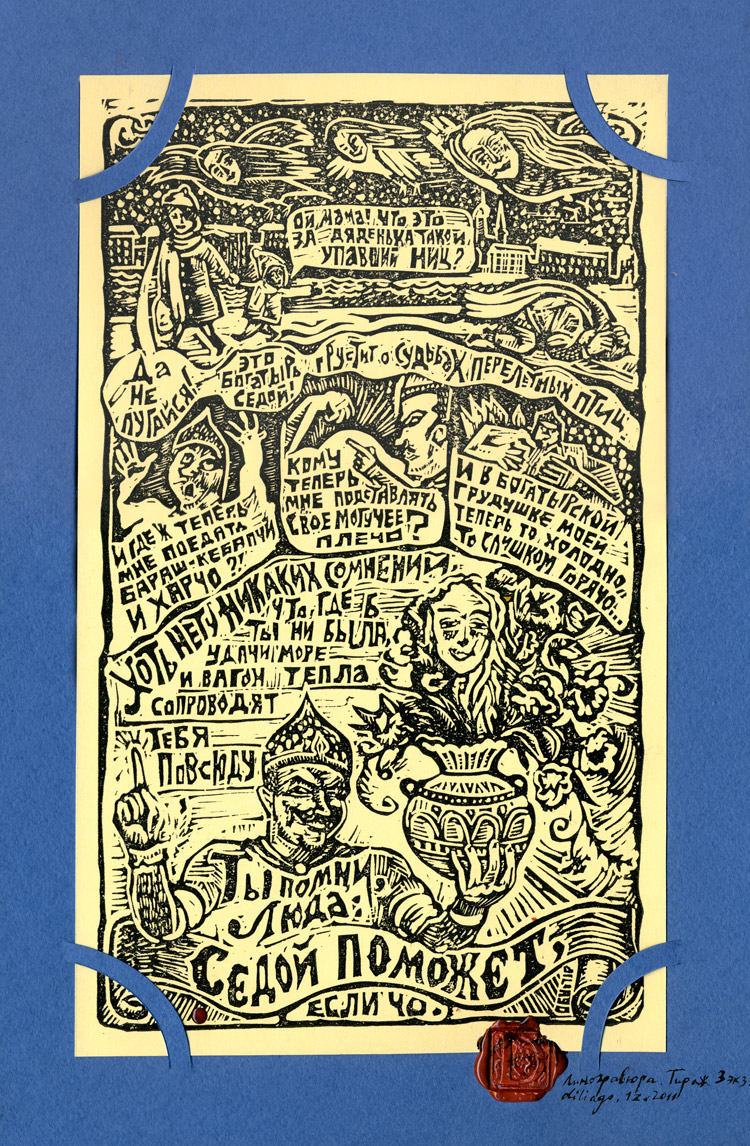 Ой, мама! Что это
за дяденька такой,
упавший ниц?
Да
не
пугайся!
Это
богатырь
Седой!
грустит о судьбах перелётных птиц
И где ж теперь
мне поедать
бараш-кебапчи
и харчо?!
Кому
теперь
мне подставлять
свое могучее
плечо?
И в богатырской
грудушке моей
теперь то холодно,
то слишком горячо...
Хоть нету никаких сомнений,
что, где б
ты ни была,
удачи море
и вагон тепла
сопроводят
тебя
повсюду
Ты помни,
Люда:
Седой поможет,
если чо.
Линогравюра. Тираж 3 экз.
12.2011